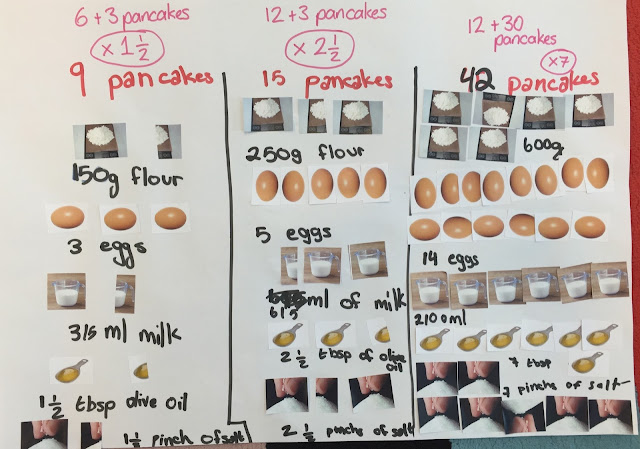 6 + 3 pancakes
x 1 1/2
9 pancakes
150g flour
3 eggs
315 ml milk
1 1/2 tbsp olive oil
1 1/2 pinch of salt
12 + 3 pancakes
x 2 1/2
15 pancakes
250g flour
5 eggs
ml of milk
613
2 1/2 tbsp of olive
oil
2 1/2 pinchs of salt
12 + 30
pancakes
x7
42 pancakes
600g
14 eggs
2100ml
7 tbsp
7 pinches of salt